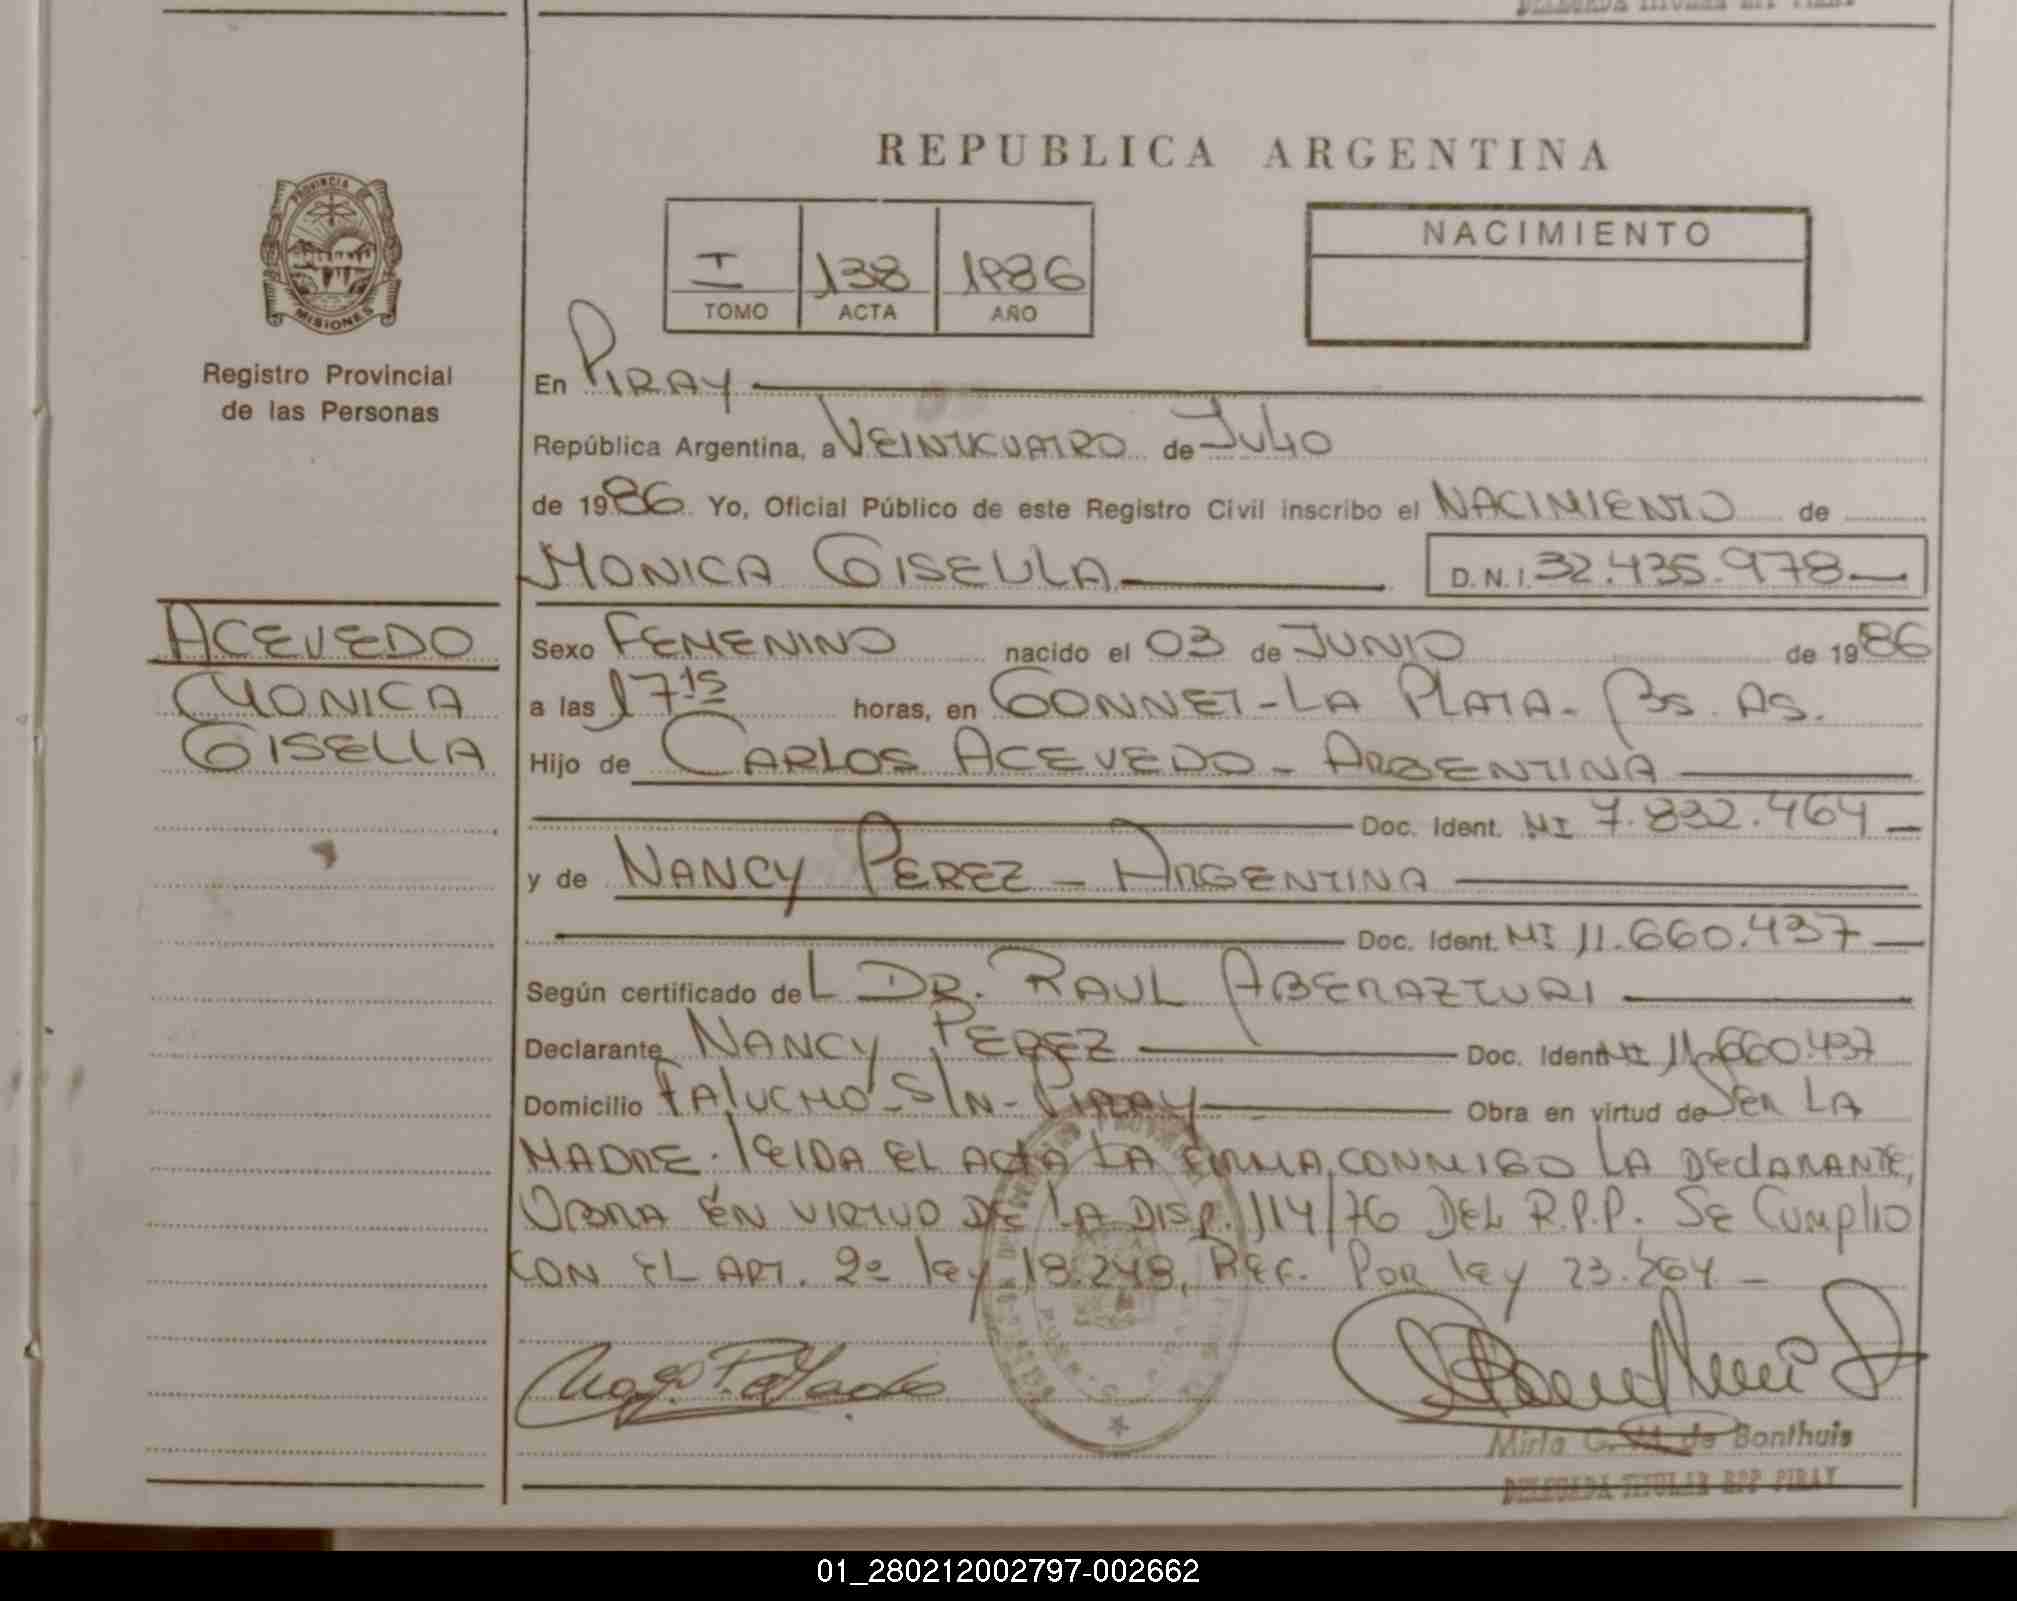 DELEGADA TITULAR RPP PIRAY
REPUBLICA ARGENTINA
PROVINCIA
MISIONES
Registro Provincial
de las Personas
I 138 1986
TOMO ACTA AÑO
NACIMIENTO
En PIRAY
República Argentina, a VEINTICUATRO de JULIO
de 1986 Yo, Oficial Público de este Registro Civil inscribo el NACIMIENTO de
MONICA GISELLA D.N.I. 32.435.978
ACEVEDO
MONICA
GISELLA
Sexo FEMENINO nacido el 03 de JUNIO de 1986
a las 17 15 horas, en GONNET - LA PLATA - Bs. As.
Hijo de CARLOS ACEVEDO - ARGENTINA
Doc. Ident. MI 7.832.464
y de NANCY PEREZ - ARGENTINA
Doc. Ident. MI 11.660.437
Según certificado del DR. RAUL ABERAZTURI
Declarante NANCY PEREZ Doc. Ident. MI 11.660.437
Domicilio FALUCHO - S/N - PIRAY Obra en virtud de SER LA
MADRE. LEIDA EL ACTA LA FIRMA CONMIGO LA DECLARANTE,
OBRA EN VIRTUD DE LA DISP. 114/76 DEL R.P.P. SE CUMPLIO
CON EL ART. 2º LEY 18.248, REF. POR LEY 23.264 -
Mirla G. M. de Bonthuis
DELEGADA TITULAR RPP PIRAY
01_280212002797-002662